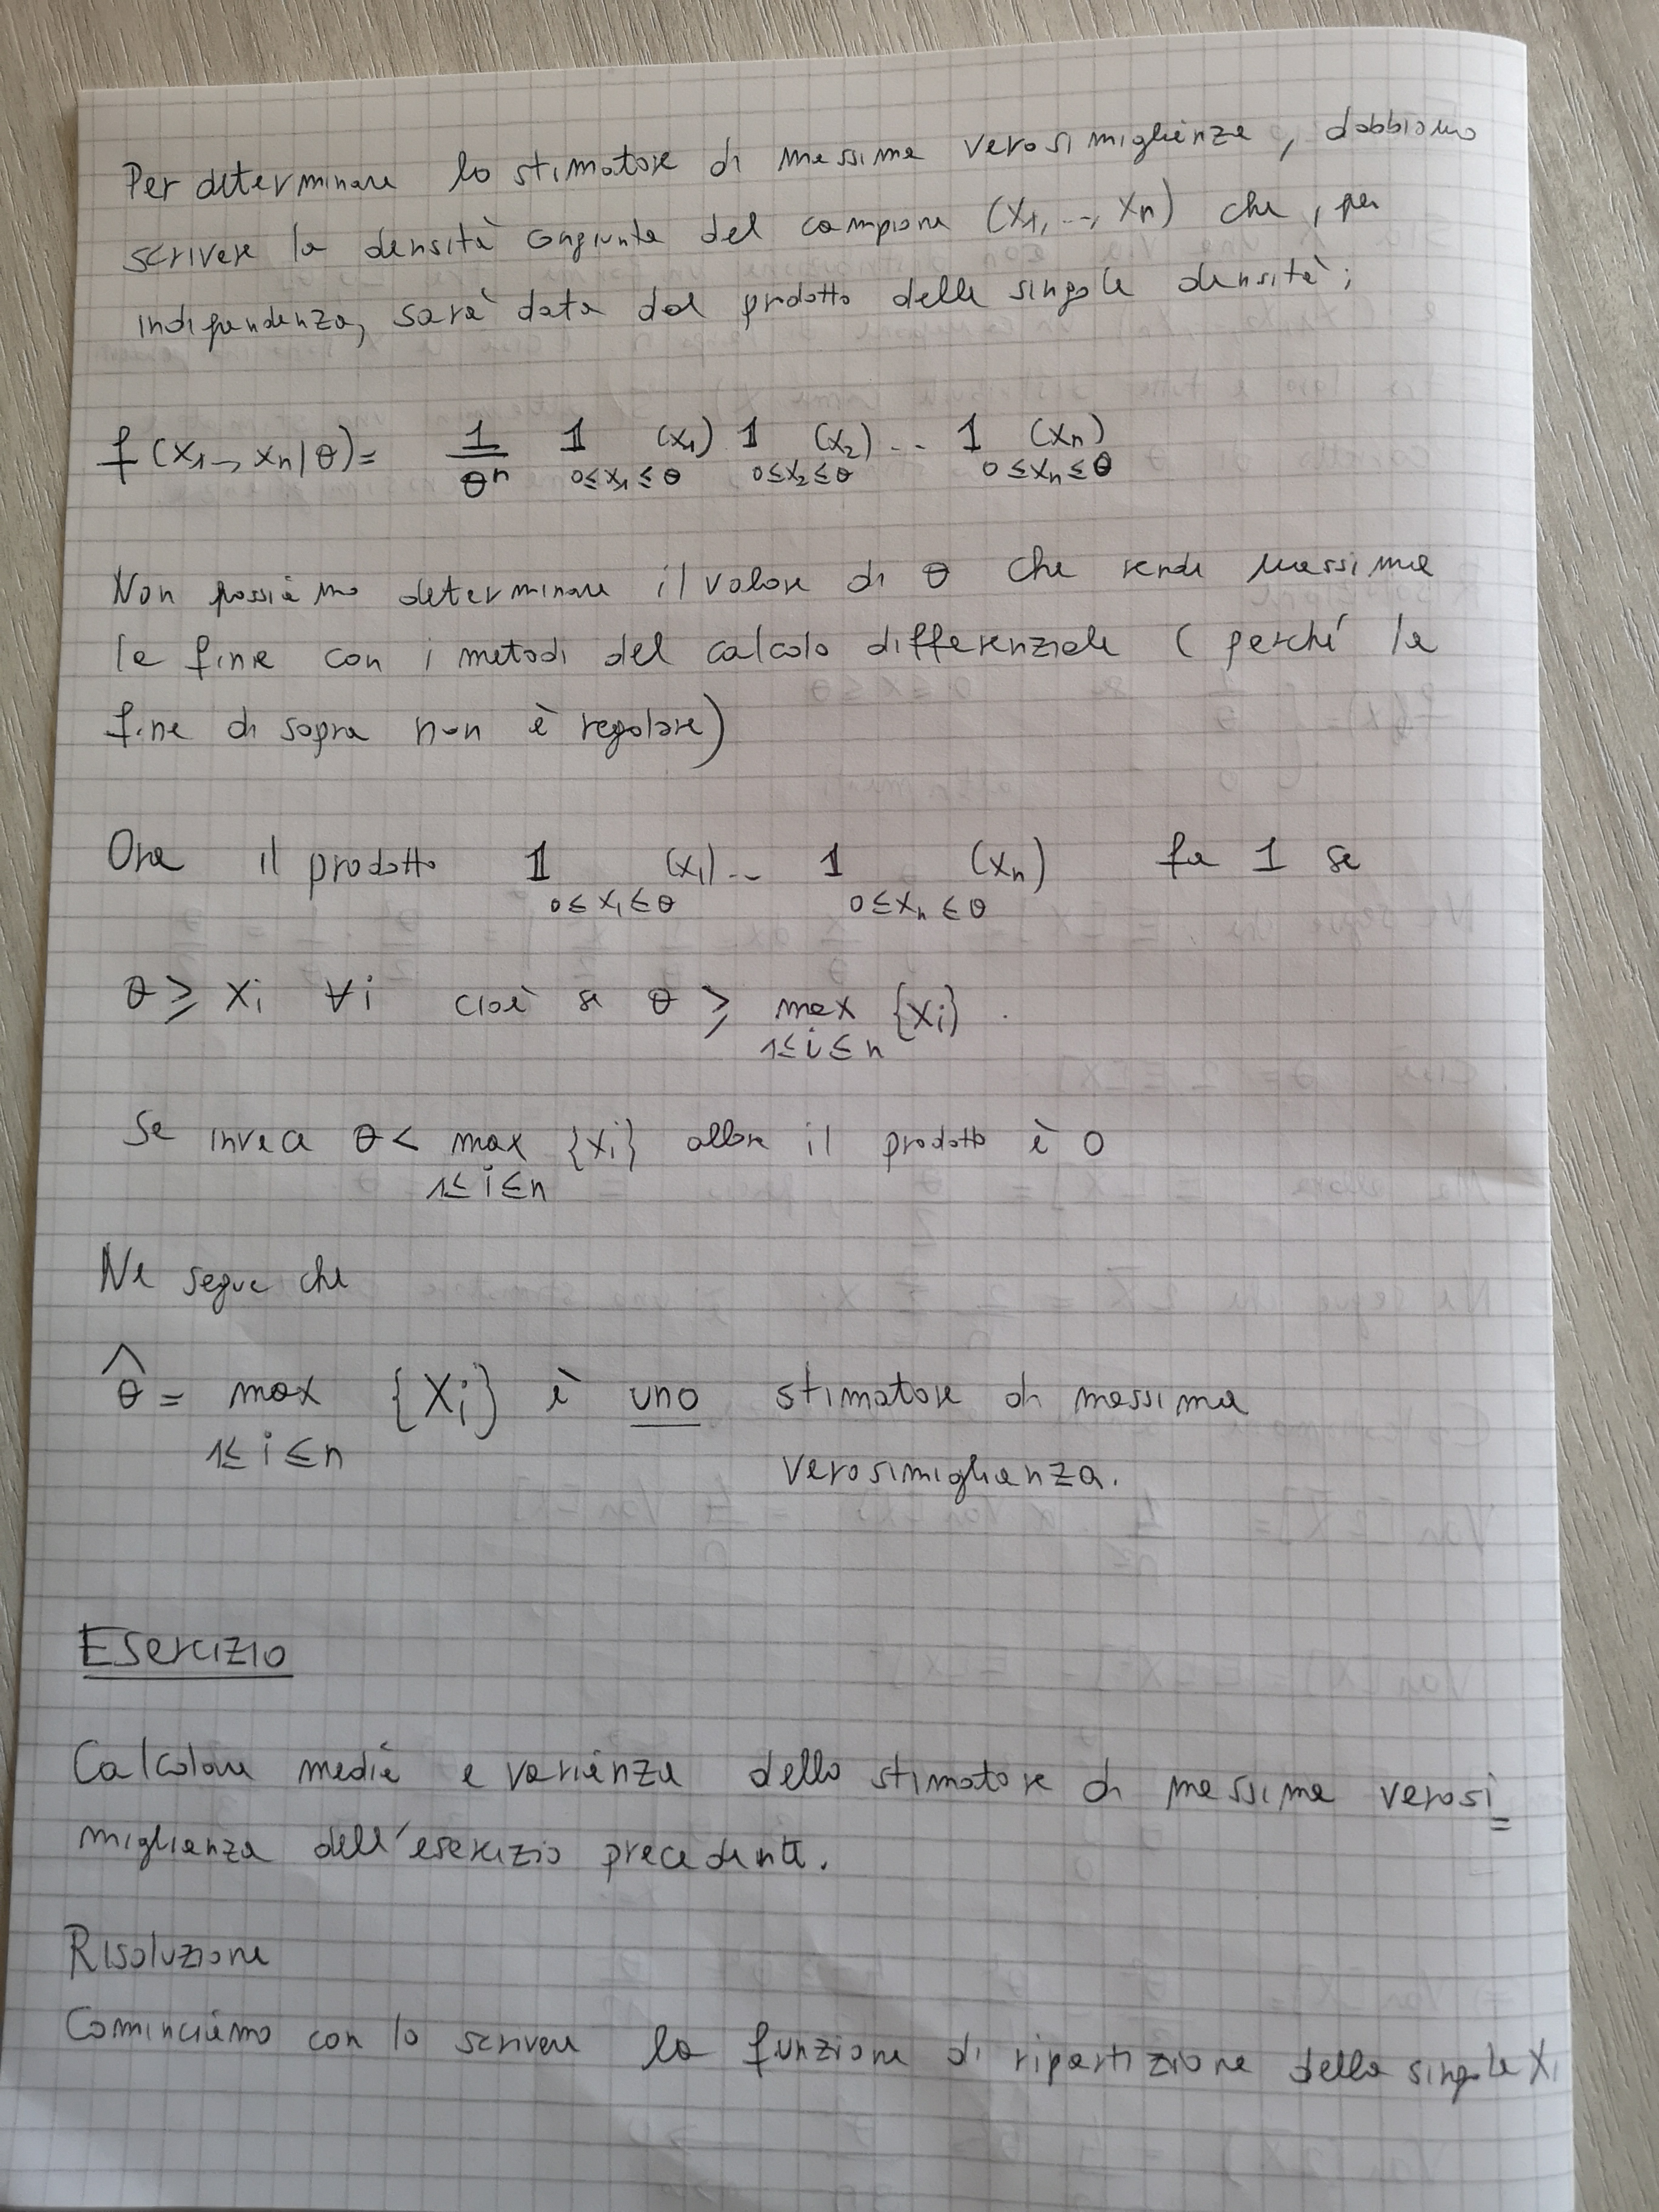 Per determinare lo stimatore di massima verosimiglianza, dobbiamo
scrivere la densità congiunta del campione (X1, .., Xn) che, per
indipendenza, sarà data dal prodotto delle singole densità;
f(x1→xn|θ)= 1/θ^n 𝟙 0≤x1≤θ (x1) 𝟙 0≤x2≤θ (x2) .. 𝟙 0≤xn≤θ (xn)
Non possiamo determinare il valore di θ che rende massima
la fine con i metodi del calcolo differenziale (perché la
fine di sopra non è regolare)
Ora il prodotto 𝟙 0≤x1≤θ (x1) .. 𝟙 0≤xn≤θ (xn) fa 1 se
θ ≥ xi ∀i cioè se θ ≥ max 1≤i≤n {xi} .
Se invece θ < max 1≤i≤n {xi} allora il prodotto è 0
Ne segue che
θ̂ = max 1≤i≤n {Xi} è uno stimatore di massima
verosimiglianza.
Esercizio
Calcolare media e varianza dello stimatore di massima verosi=
miglianza dell'esercizio precedente.
Risoluzione
Cominciamo con lo scrivere la funzione di ripartizione della singola Xi